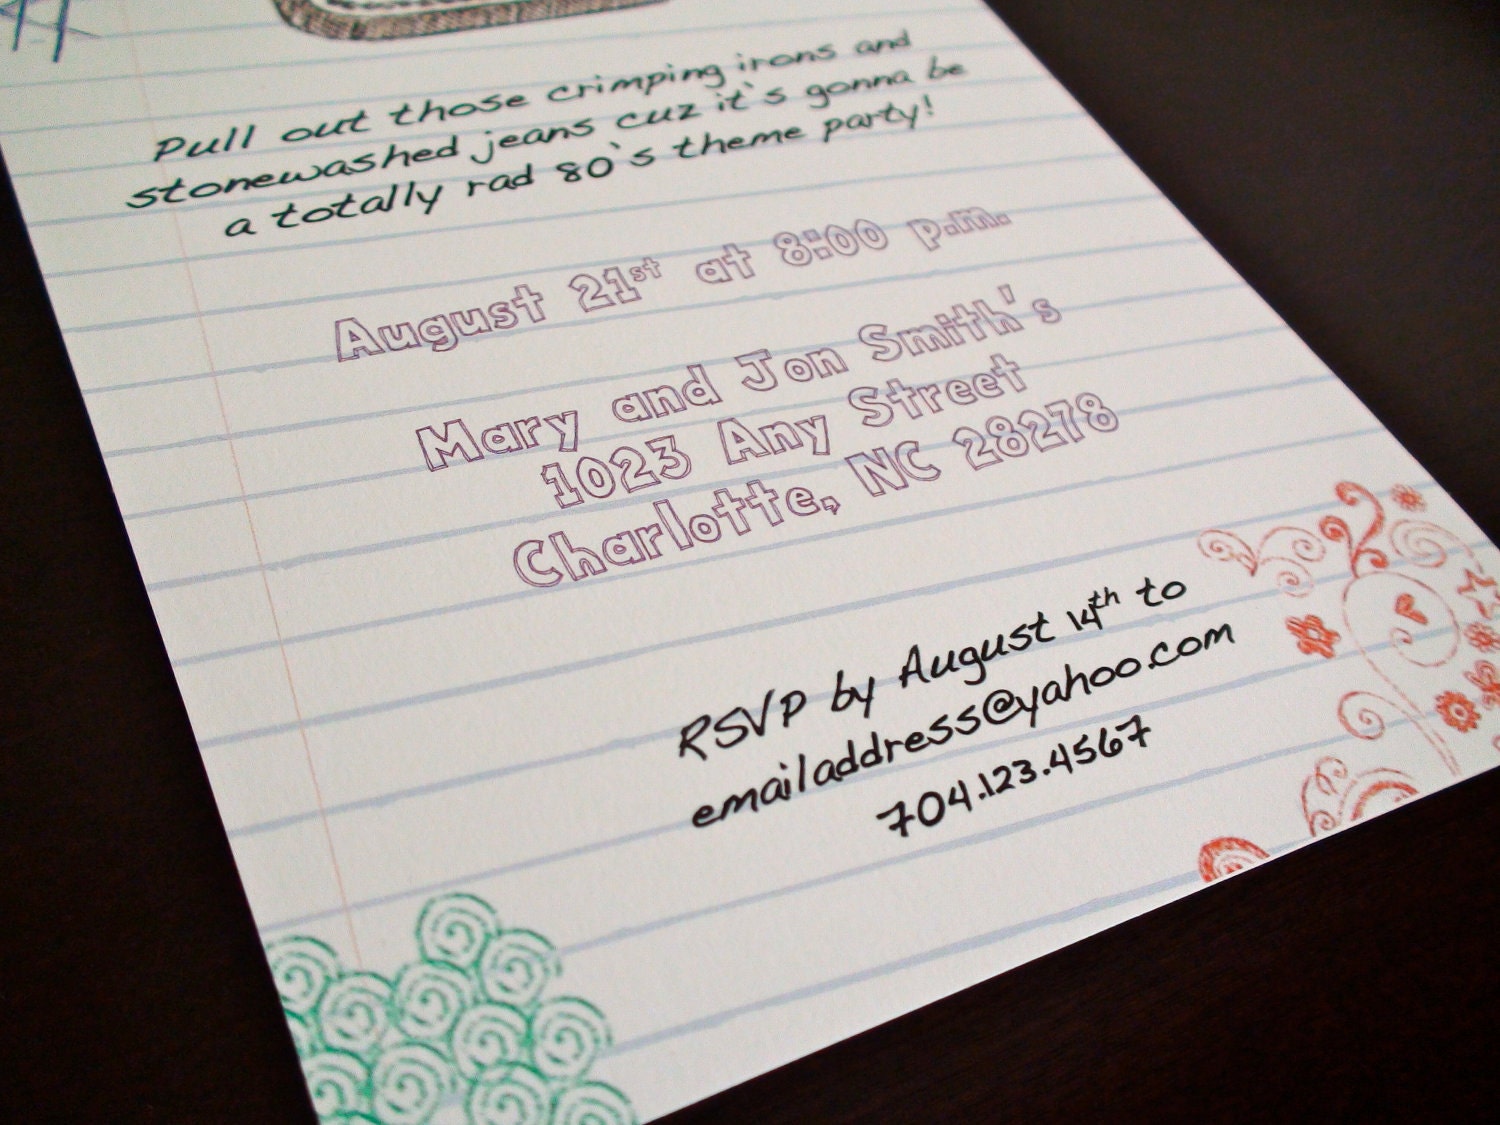 Pull out those crimping irons and
stonewashed jeans cuz it's gonna be
a totally rad 80's theme party!
August 21st at 8:00 p.m.
Mary and Jon Smith's
1023 Any Street
Charlotte, NC 28278
RSVP by August 14th to
emailaddress@yahoo.com
704.123.4567